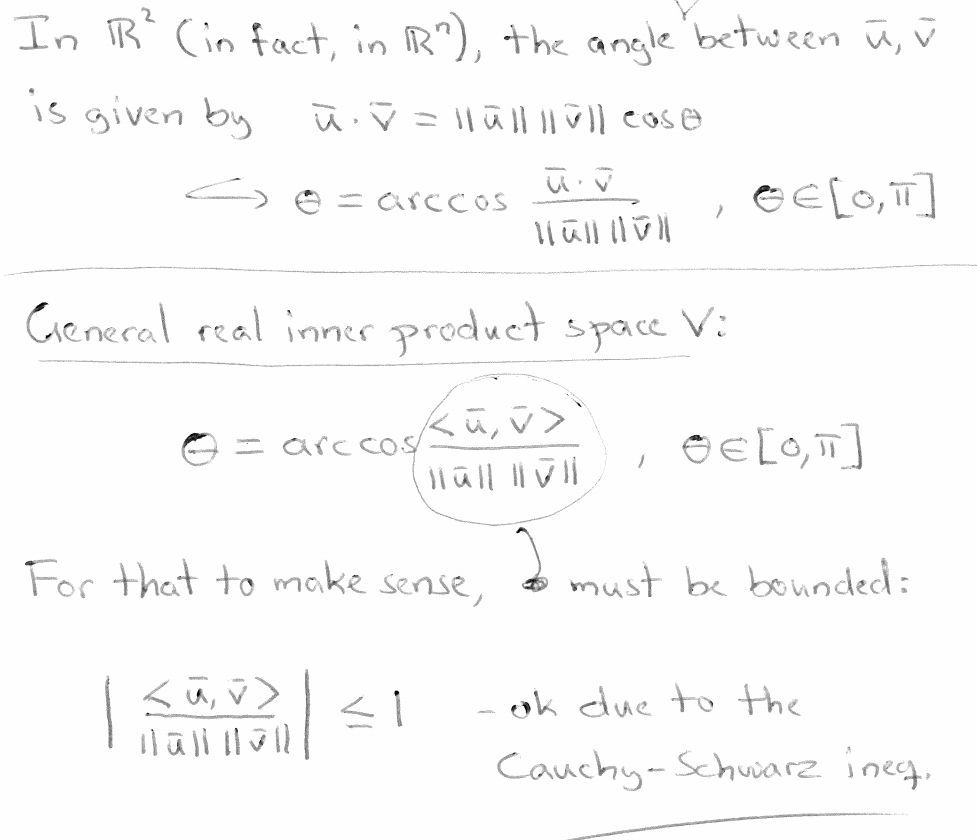 In ℝ² (in fact, in ℝⁿ), the angle between ū, v̄
is given by ū · v̄ = ||ū|| ||v̄|| cos θ
⟺ θ = arccos (ū · v̄)/(||ū|| ||v̄||) , θ ∈ [0, π]
General real inner product space V:
θ = arccos <ū, v̄>/(||ū|| ||v̄||) , θ ∈ [0, π]
For that to make sense, must be bounded:
|<ū, v̄>/(||ū|| ||v̄||)| ≤ 1 - ok due to the
Cauchy-Schwarz ineq.